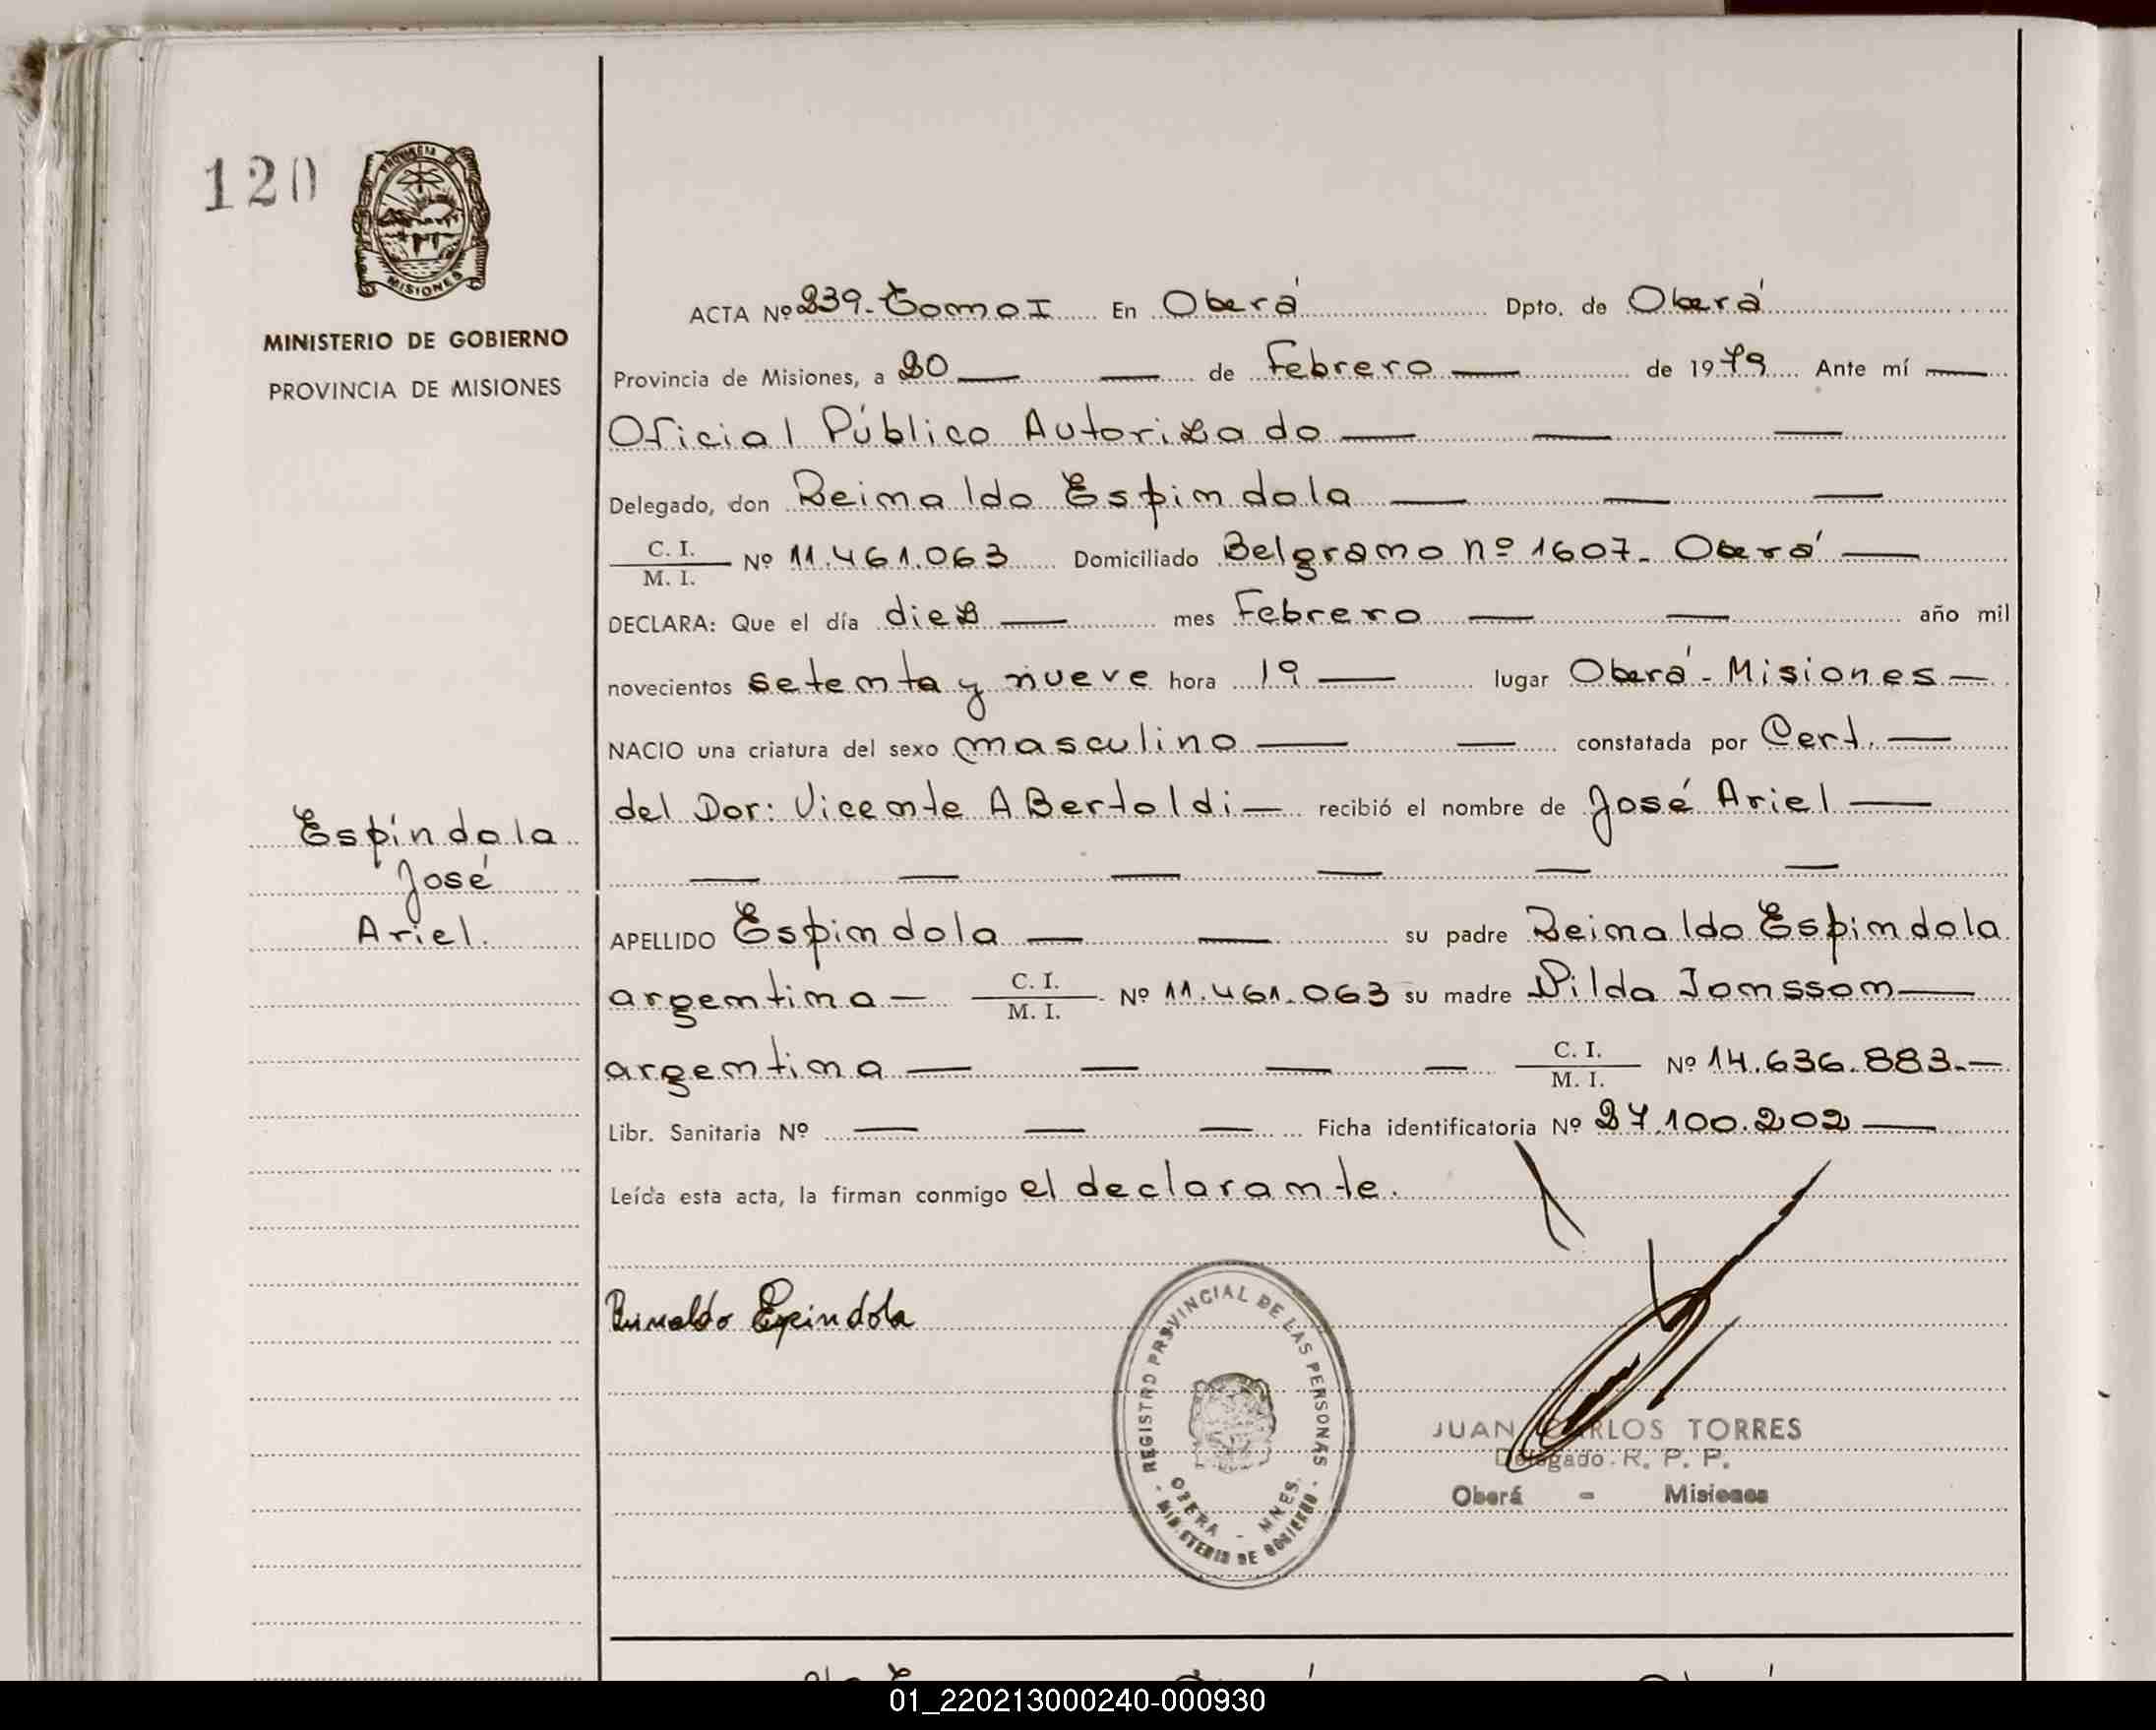 120
PROVINCIA DE
MISIONES
MINISTERIO DE GOBIERNO
PROVINCIA DE MISIONES
Espíndola
José
Ariel.
ACTA Nº 239.- Tomo I En Oberá Dpto. de Oberá
Provincia de Misiones, a 20 — — de Febrero — de 1979 Ante mí —
Oficial Público Autorizado — — —
Delegado, don Reinaldo Espindola — — —
C. I. / M. I. Nº 11.461.063 Domiciliado Belgrano nº 1607.- Oberá —
DECLARA: Que el día diez — mes Febrero — — año mil
novecientos setenta y nueve hora 19 — lugar Oberá - Misiones —
NACIO una criatura del sexo masculino — — constatada por Cert. —
del Dor: Vicente A Bertoldi — recibió el nombre de José Ariel —
— — — — — —
APELLIDO Espindola — — su padre Reinaldo Espindola
argentina — C. I. / M. I. Nº 11.461.063 su madre Nilda Jonsson —
argentina — — — — C. I. / M. I. Nº 14.636.883.-
Libr. Sanitaria Nº — — — Ficha identificatoria Nº 27.100.202 —
Leída esta acta, la firman conmigo el declarante.
Reinaldo Espindola
REGISTRO PROVINCIAL DE LAS PERSONAS
OBERA - MNES.
- MINISTERIO DE GOBIERNO -
JUAN CARLOS TORRES
Delegado R. P. P.
Oberá - Misiones
01_220213000240-000930